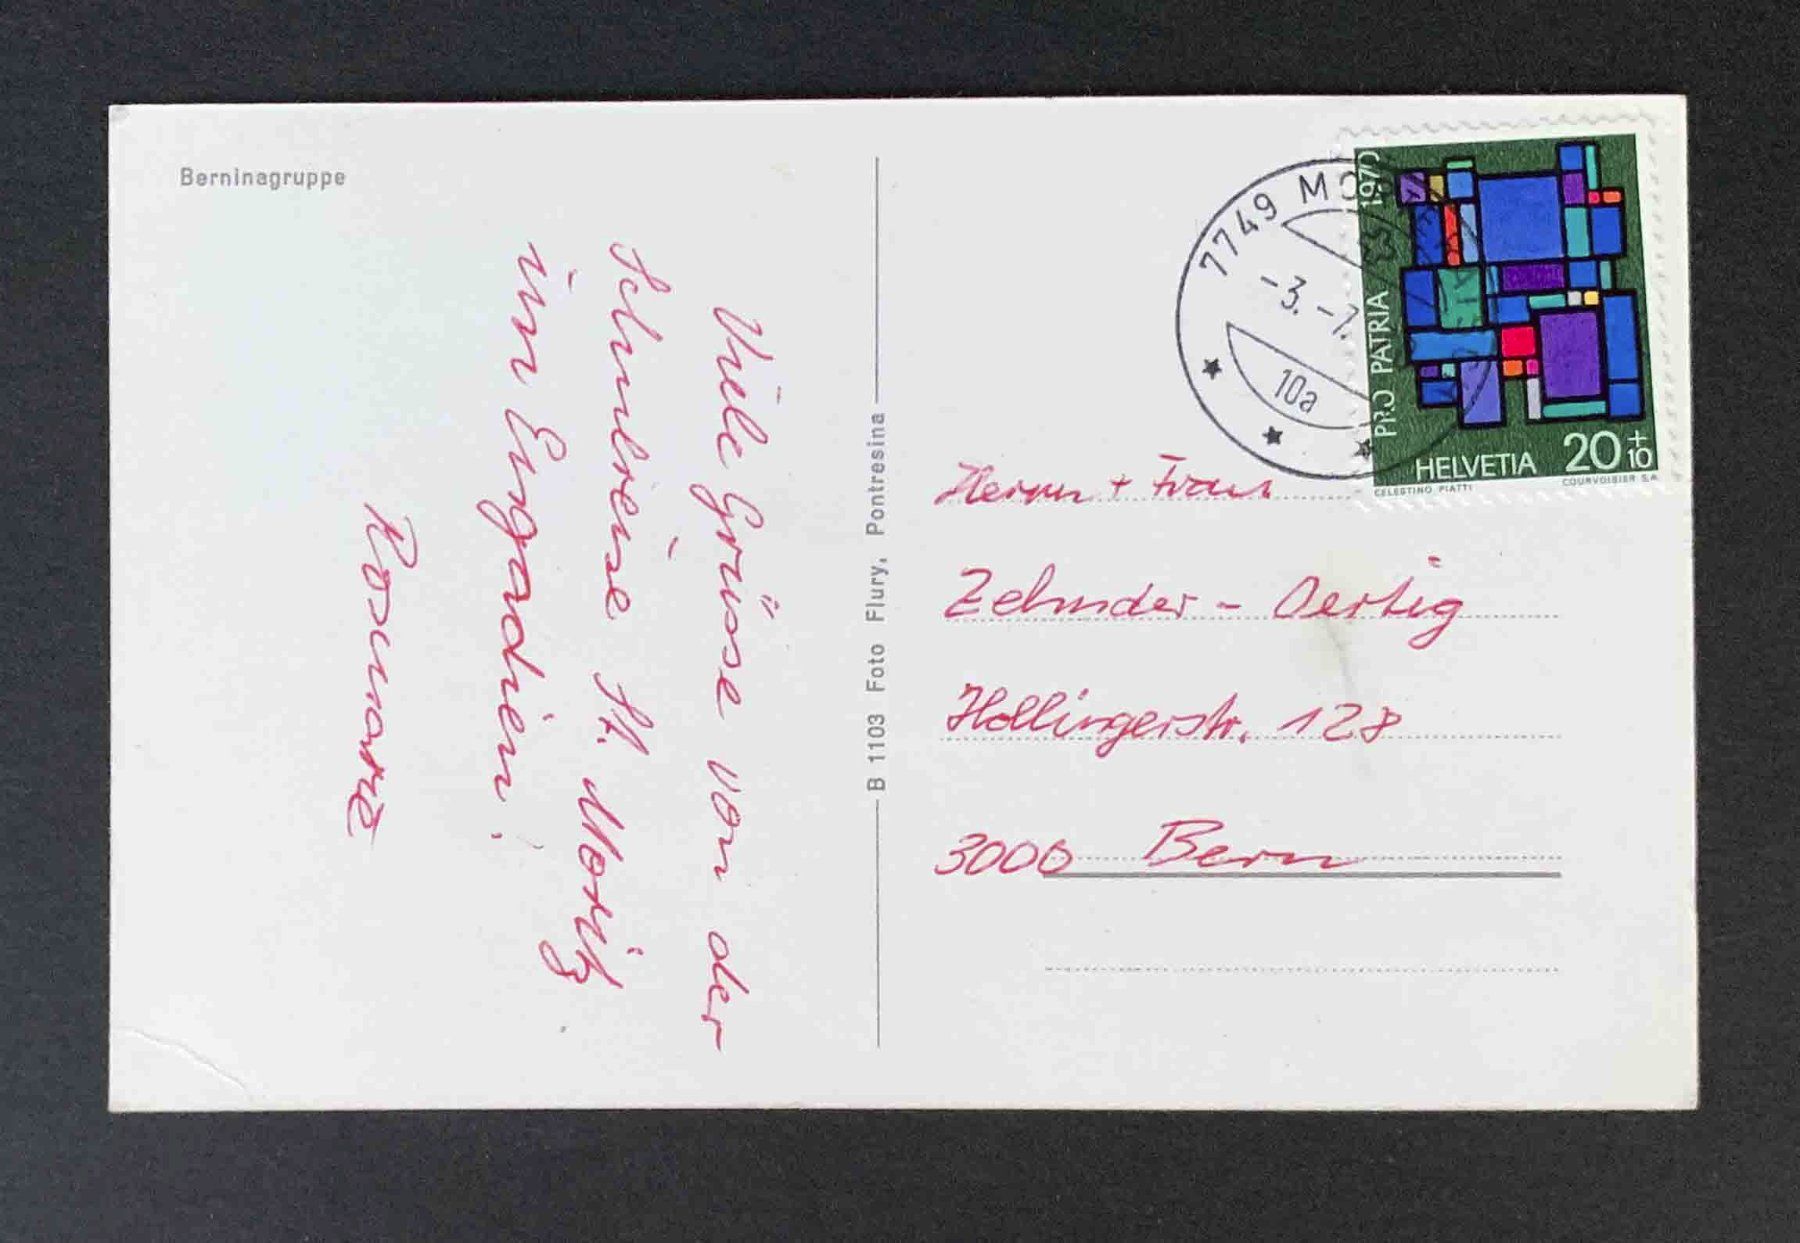 Berninagruppe
Viele Grüsse von der
Schulreise St. Moritz
im Engadin!
Rosmarie
B 1103 Foto Flury, Pontresina
7749
-3. -7.
10a
PRO PATRIA 1970
HELVETIA 20+10
CELESTINO PIATTI COURVOISIER S.A.
Herrn + Frau
Zehnder - Oertig
Hollingerstr. 128
3000 Bern